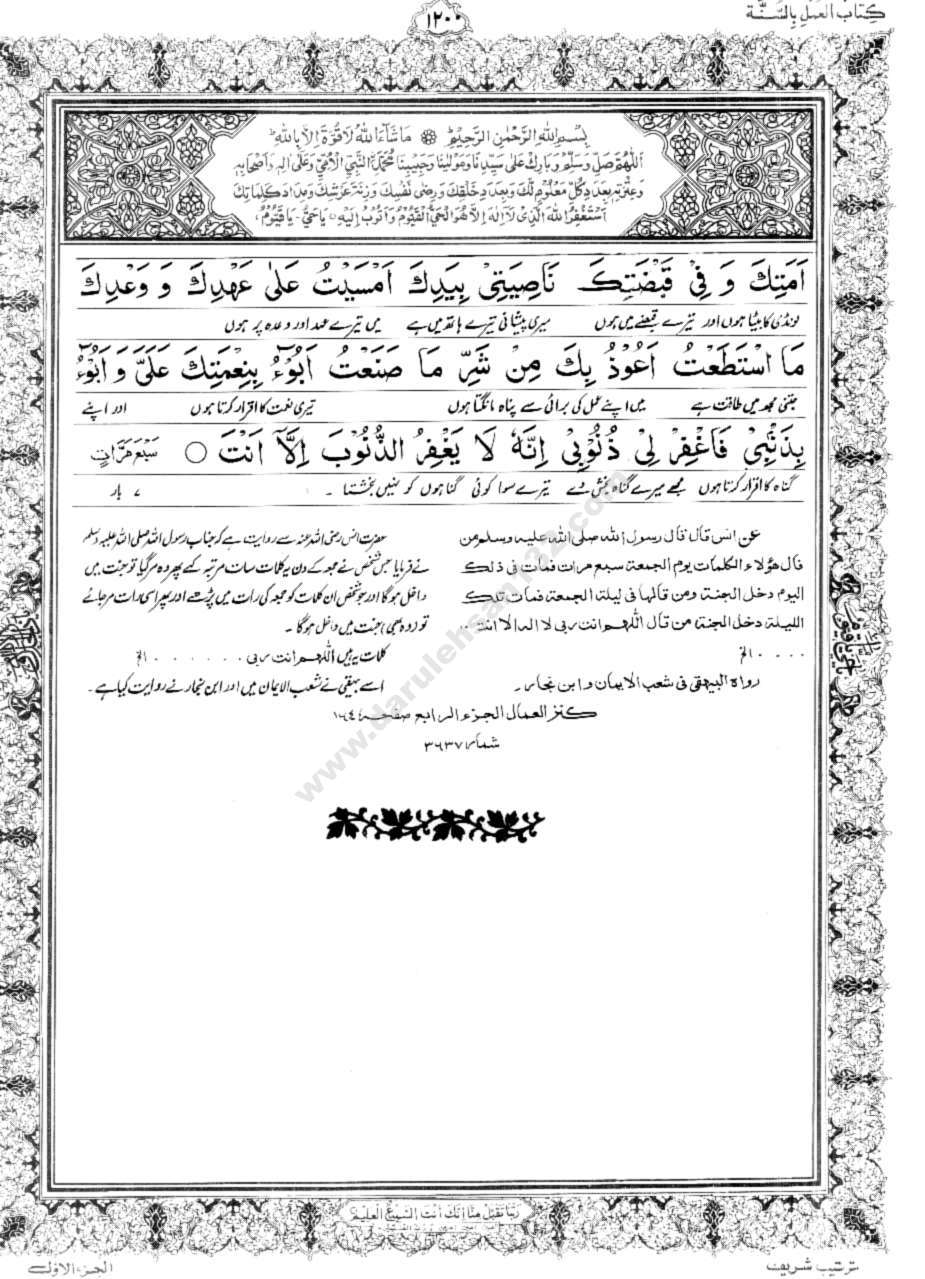 كِتَابُ العَمَلِ بِالسُّنَّة
۱۲۰۰
بِسْمِ اللهِ الرَّحْمٰنِ الرَّحِيْمِ ۞ مَا شَآءَ اللهُ لَا قُوَّةَ اِلَّا بِاللهِ ط
اَللّٰهُمَّ صَلِّ وَسَلِّمْ وَبَارِكْ عَلٰى سَيِّدِنَا وَمَوْلٰينَا وَحَبِيْبِنَا مُحَمَّدِ ۨالنَّبِيِّ الْاُمِّيِّ وَعَلٰى اٰلِهٖ وَاَصْحَابِهٖ
وَعِتْرَتِهٖ بِعَدَدِ كُلِّ مَعْلُوْمٍ لَّكَ وَبِعَدَدِ خَلْقِكَ وَرِضٰى نَفْسِكَ وَزِنَةَ عَرْشِكَ وَمِدَادَ كَلِمَاتِكَ
اَسْتَغْفِرُ اللهَ الَّذِىْ لَآ اِلٰهَ اِلَّا هُوَ الْحَيُّ الْقَيُّوْمُ وَاَتُوْبُ اِلَيْهِ ۞ يَا حَيُّ - يَا قَيُّوْمُ
اَمَتِكَ وَ فِىْ قَبْضَتِكَ نَاصِيَتِىْ بِيَدِكَ اَمْسَيْتُ عَلٰى عَهْدِكَ وَ وَعْدِكَ
لونڈی کا بیٹا ہوں اور تیرے قبضے میں ہوں میری پیشانی تیرے ہاتھ میں ہے میں تیرے عہد اور وعدہ پر ہوں
مَا اسْتَطَعْتُ اَعُوْذُ بِكَ مِنْ شَرِّ مَا صَنَعْتُ اَبُوْٓءُ بِنِعْمَتِكَ عَلَىَّ وَ اَبُوْٓءُ
جتنی مجھ میں طاقت ہے میں اپنے عمل کی برائی سے پناہ مانگتا ہوں تیری نعمت کا اقرار کرتا ہوں اور اپنے
بِذَنْبِىْ فَاغْفِرْ لِىْ ذُنُوْبِىْ اِنَّهٗ لَا يَغْفِرُ الذُّنُوْبَ اِلَّآ اَنْتَ ○ سَبْعَ مَرَّاتٍ
گناہ کا اقرار کرتا ہوں مجھے میرے گناہ بخش دے تیرے سوا کوئی گناہوں کو نہیں بخشتا ۔ ۷ بار
عن انس قال قال رسول الله صلى الله عليه وسلم من
قال هؤلاء الكلمات يوم الجمعة سبع مرات فمات فى ذلك
اليوم دخل الجنة ومن قالها فى ليلة الجمعة فمات تلك
الليلة دخل الجنة من قال اللهم انت ربى لا اله الا انت ..
.... الخ
رواه البيهقى فى شعب الايمان و ابن نجار۔
حضرت انس رضی اللہ عنہ سے روایت ہے کہ جناب رسول اللہ صلی اللہ علیہ وسلم
نے فرمایا جس شخص نے جمعہ کے دن یہ کلمات سات مرتبہ کہے پھر وہ مر گیا تو جنت میں
داخل ہوگا اور جو شخص ان کلمات کو جمعہ کی رات میں پڑھے اور پھر اسی رات مر جائے
تو (وہ بھی) جنت میں داخل ہوگا ۔
کلمات یہ ہیں اللهم انت ربى ....... الخ
اسے بیہقی نے شعب الایمان میں اور ابن نجار نے روایت کیا ہے ۔
كنز العمال الجزء الرابع صفحہ ۱۶۴
شمار ۳۶۳۷
www.darulehsan132.com
رَبَّنَا تَقَبَّلْ مِنَّا اِنَّكَ اَنْتَ السَّمِيْعُ الْعَلِيْمُ
ترتیب شریف
الجزء الاوّل